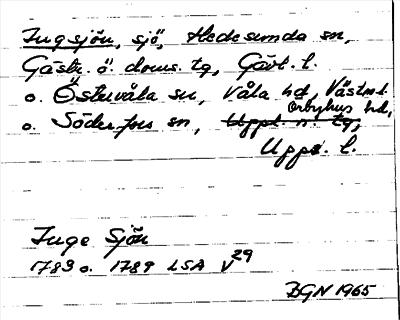 Ingsjön, sjö, Hedesunda sn,
Gästr. ö. doms. tg, Gävl. l.
o. Östervåla sn, Våla hd, Västml. l.
Örbyhus hd,
o. Söderfors sn, Uppl. n. tg,
Upps. l.
Inge Sjön
1783 o. 1789 LSA V29
BGN 1965